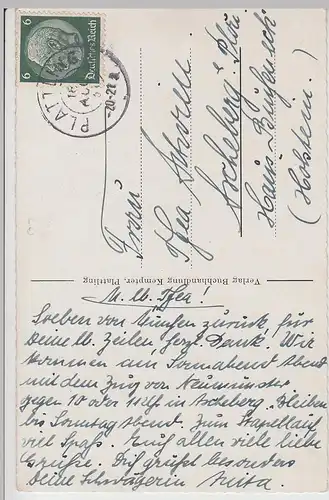 6 Deutsches Reich 6
PLATTLING
-20-21
Frau
Thea
Ascheberg i. Hol.
Haus
(Holstein)
Verlag Buchhandlung Kempter, Plattling
M. lb. Thea!
Soeben von München zurück, für
Deine lb. Zeilen, herzl. Dank. Wir
kommen am Sonnabend Abend
mit dem Zug von Neumünster
gegen 10 oder 11 Uhr in Ascheberg. Bleiben
bis Sonntag abend. Zum Stapellauf
viel Spaß. Euch allen viele liebe
Grüße. Dich grüßt besonders
Deine Schwägerin Anita.